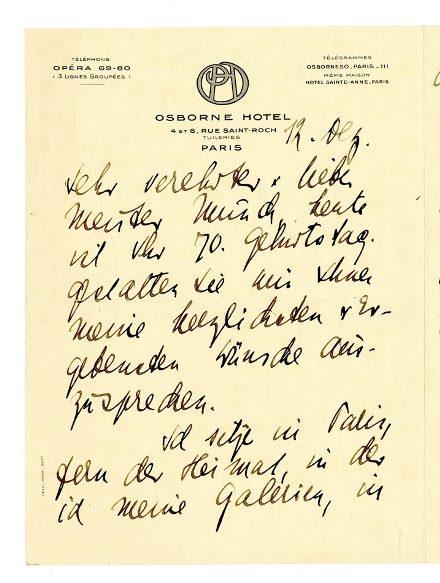 TÉLÉPHONE
OPÉRA 69-80
(3 LIGNES GROUPÉES)
TÉLÉGRAMMES
OSBORNESO, PARIS_111
MÊME MAISON
HOTEL SAINTE-ANNE, PARIS
OSBORNE HOTEL
4 ET 6, RUE SAINT-ROCH
TUILERIES
PARIS
12. Dez.
Sehr verehrter & lieber
Meister Munch, heute
ist Ihr 70. Geburtstag.
Gestatten Sie mir Ihnen
meine herzlichsten & er-
gebensten Wünsche aus-
zusprechen.
Ich sitze in Paris,
fern der Heimat, in der
ich meine Galerien, in